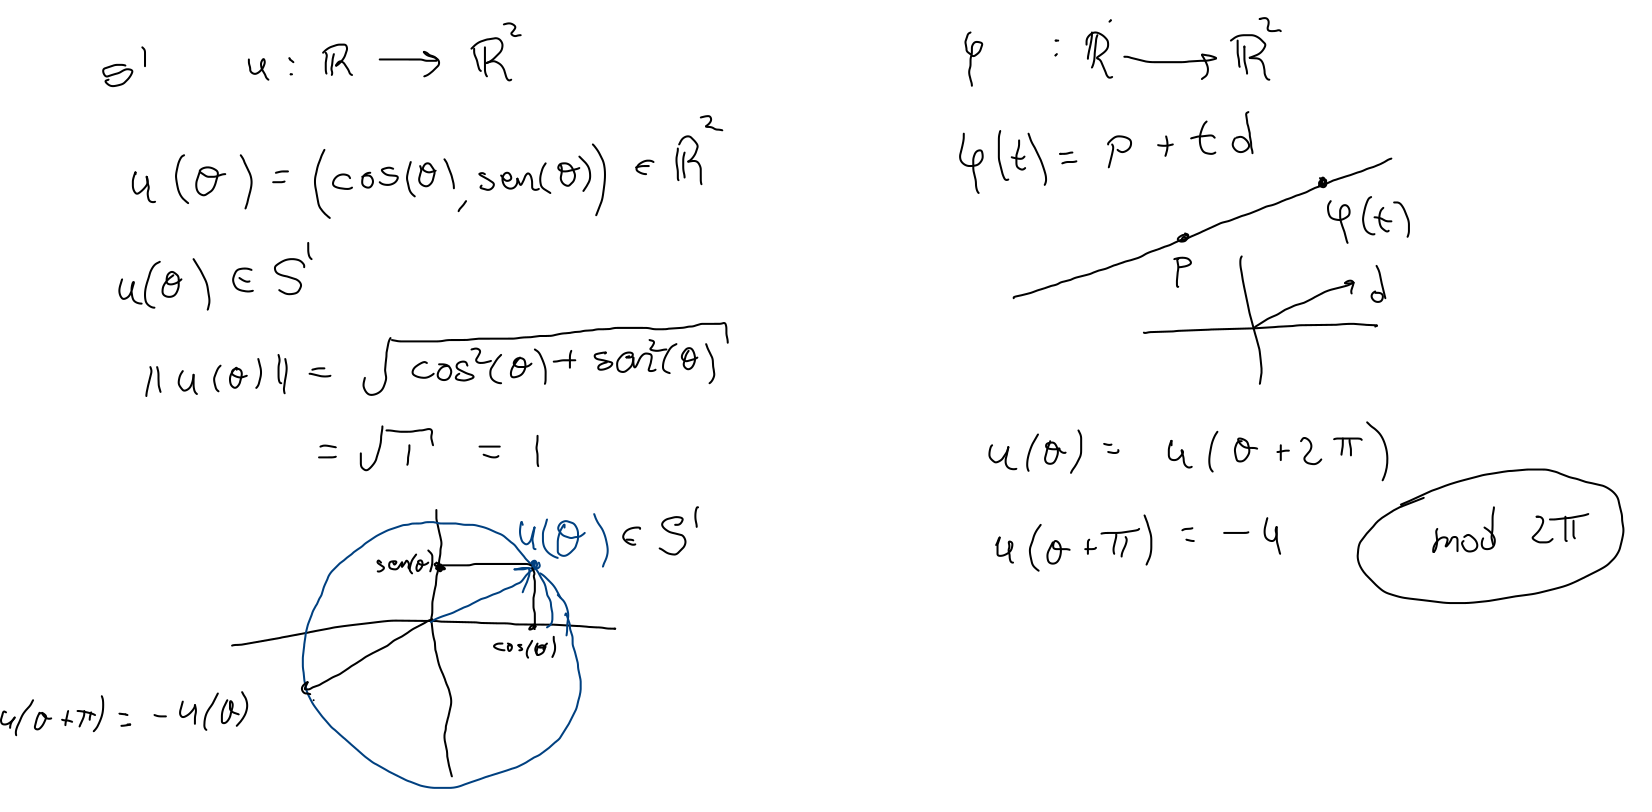 S¹ u : ℝ → ℝ²
u(θ) = (cos(θ), sen(θ)) ∈ ℝ²
u(θ) ∈ S¹
||u(θ)|| = √(cos²(θ) + sen²(θ))
= √1 = 1
u(θ) ∈ S¹
sen(θ)
cos(θ)
u(θ+π) = -u(θ)
φ : ℝ → ℝ²
φ(t) = P + t d
φ(t)
P
d
u(θ) = u(θ + 2π)
u(θ+π) = -u
mod 2π